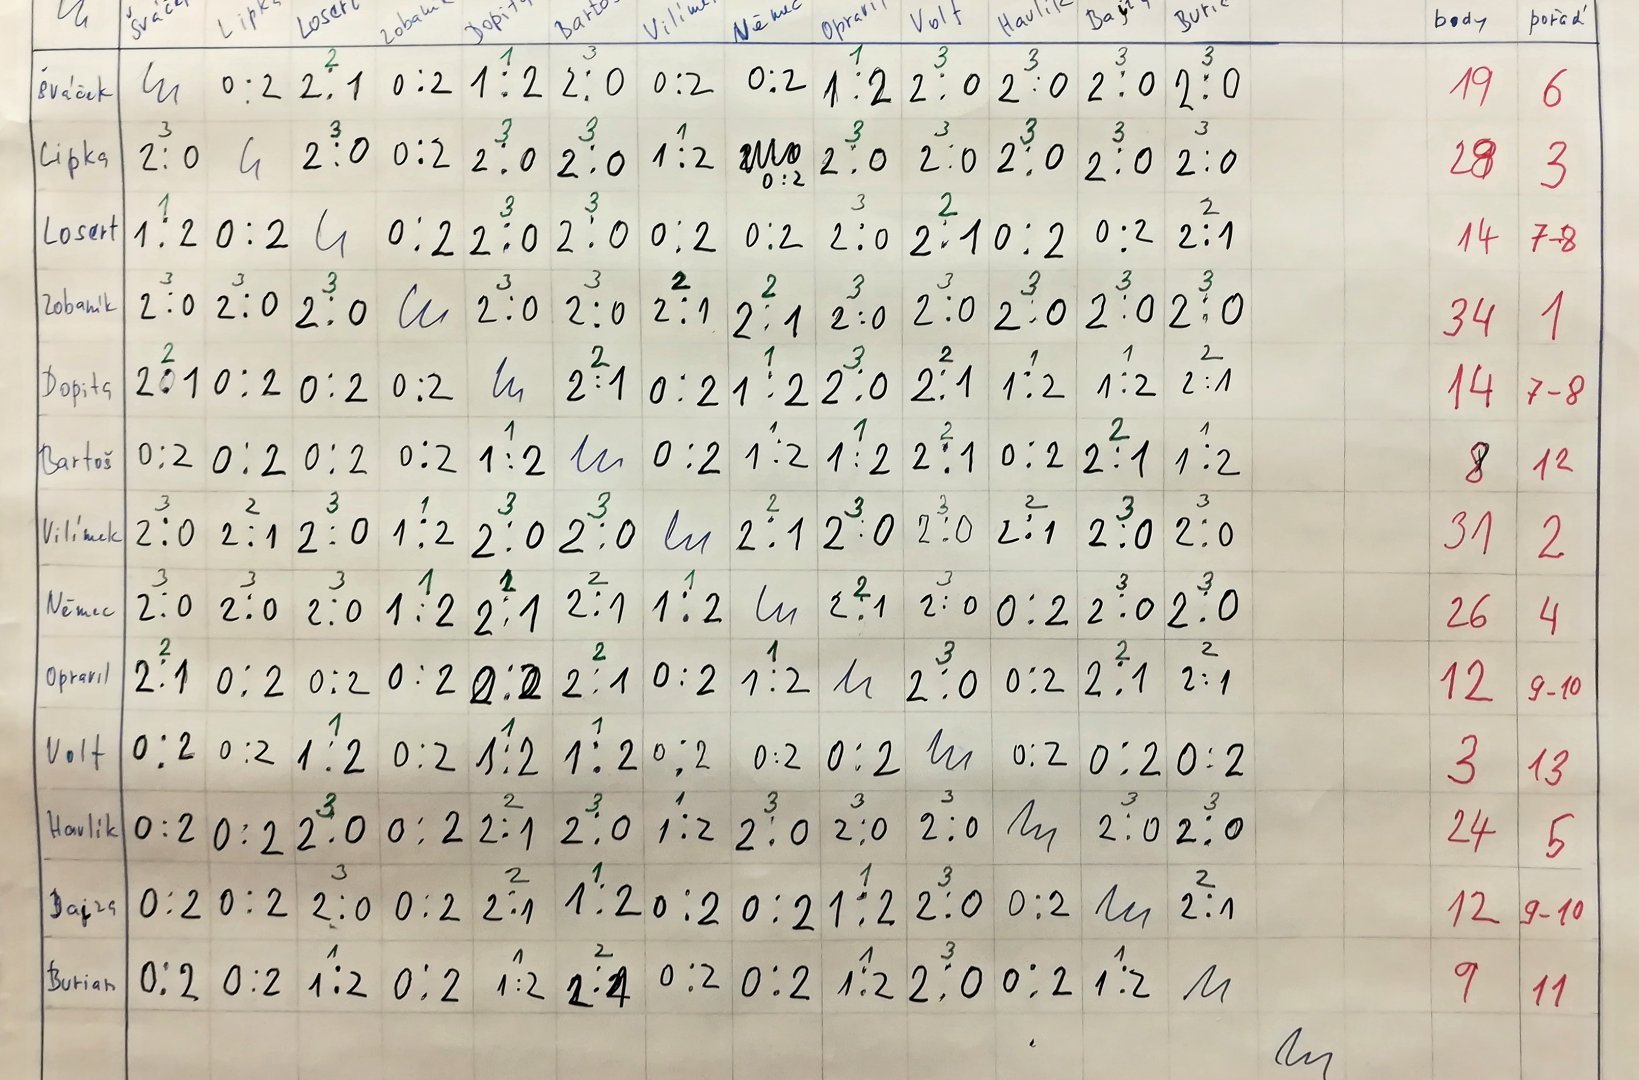 Šváček Lipka Losert Zobaník Dopita Bartoš Vilímek Němec Opravil Volf Havlík Bajza Burian body pořadí
2 1 3 1 3 3 3 3
Šváček 0:2 2:1 0:2 1:2 2:0 0:2 0:2 1:2 2:0 2:0 2:0 2:0 19 6
3 3 3 3 1 3 3 3 3 3
Lipka 2:0 2:0 0:2 2:0 2:0 1:2 0:2 2:0 2:0 2:0 2:0 2:0 28 3
1 3 3 3 2 2
Losert 1:2 0:2 0:2 2:0 2:0 0:2 0:2 2:0 2:1 0:2 0:2 2:1 14 7-8
3 3 3 3 3 2 2 3 3 3 3 3
Zobaník 2:0 2:0 2:0 2:0 2:0 2:1 2:1 2:0 2:0 2:0 2:0 2:0 34 1
2 2 1 3 2 1 1 2
Dopita 2:1 0:2 0:2 0:2 2:1 0:2 1:2 2:0 2:1 1:2 1:2 2:1 14 7-8
1 1 1 2 2 1
Bartoš 0:2 0:2 0:2 0:2 1:2 0:2 1:2 1:2 2:1 0:2 2:1 1:2 8 12
3 2 3 1 3 3 2 3 3 2 3 3
Vilímek 2:0 2:1 2:0 1:2 2:0 2:0 2:1 2:0 2:0 2:1 2:0 2:0 31 2
3 3 3 1 2 2 1 2 3 3 3
Němec 2:0 2:0 2:0 1:2 2:1 2:1 1:2 2:1 2:0 0:2 2:0 2:0 26 4
2 2 1 3 2 2
Opravil 2:1 0:2 0:2 0:2 0:2 2:1 0:2 1:2 2:0 0:2 2:1 2:1 12 9-10
1 1 1
Volf 0:2 0:2 1:2 0:2 1:2 1:2 0:2 0:2 0:2 0:2 0:2 0:2 3 13
3 2 3 1 3 3 3 3 3
Havlík 0:2 0:2 2:0 0:2 2:1 2:0 1:2 2:0 2:0 2:0 2:0 2:0 24 5
3 2 1 1 3 2
Bajza 0:2 0:2 2:0 0:2 2:1 1:2 0:2 0:2 1:2 2:0 0:2 2:1 12 9-10
1 1 2 1 3 1
Burian 0:2 0:2 1:2 0:2 1:2 2:1 0:2 0:2 1:2 2:0 0:2 1:2 9 11